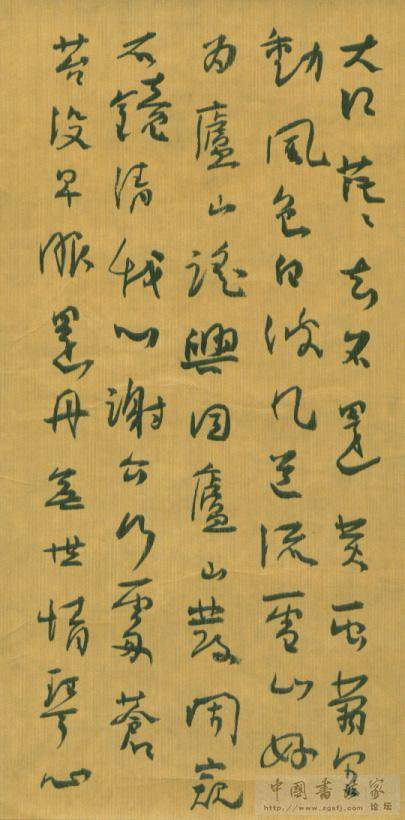 大江茫〻去不還黃雲萬里
動風色白波九道流雪山好
為廬山謠興因廬山發閑窺
石鏡清我心謝公行處蒼
苔沒早服還丹無世情琴心
中國書法家
http://www.zgsfj.com 论坛